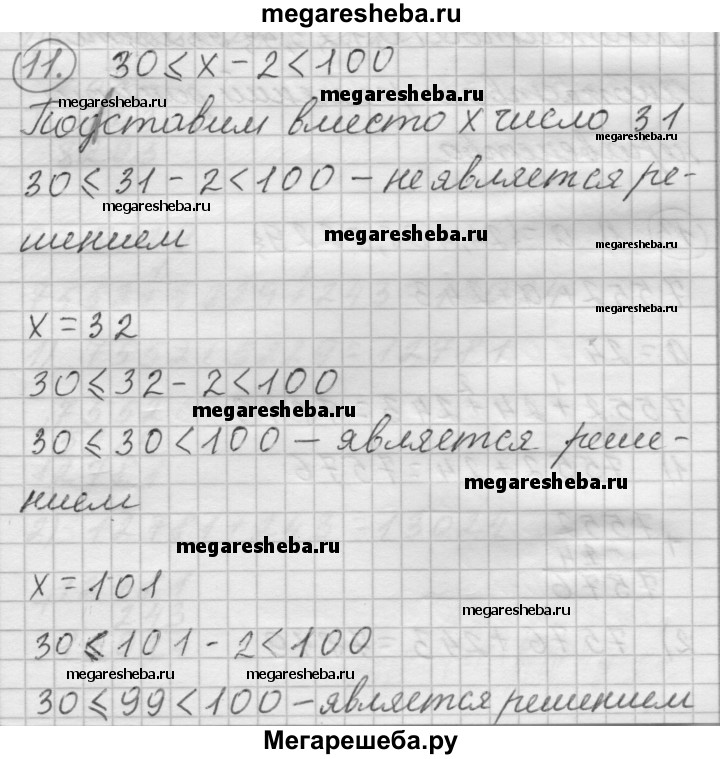 megaresheba.ru
11. 30 ⩽ x - 2 < 100
megaresheba.ru
megaresheba.ru
Подставим вместо x число 31
megaresheba.ru
30 ⩽ 31 - 2 < 100 – не является ре-
megaresheba.ru
шением
megaresheba.ru
megaresheba.ru
x = 32
30 ⩽ 32 - 2 < 100
megaresheba.ru
30 ⩽ 30 < 100 – является реше-
megaresheba.ru
нием
megaresheba.ru
x = 101
megaresheba.ru
30 ⩽ 101 - 2 < 100
megaresheba.ru megaresheba.ru
30 ⩽ 99 < 100 – является решением
Мегарешеба.ру